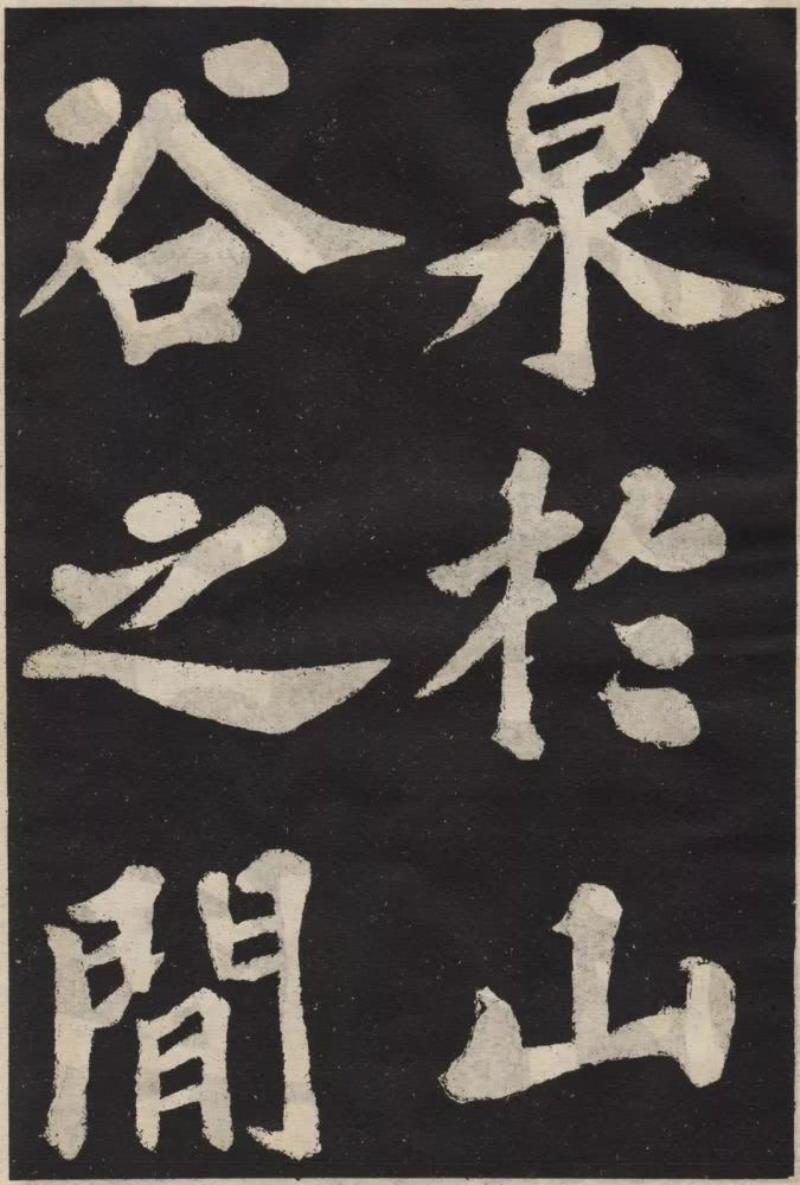 泉於山
谷之閒